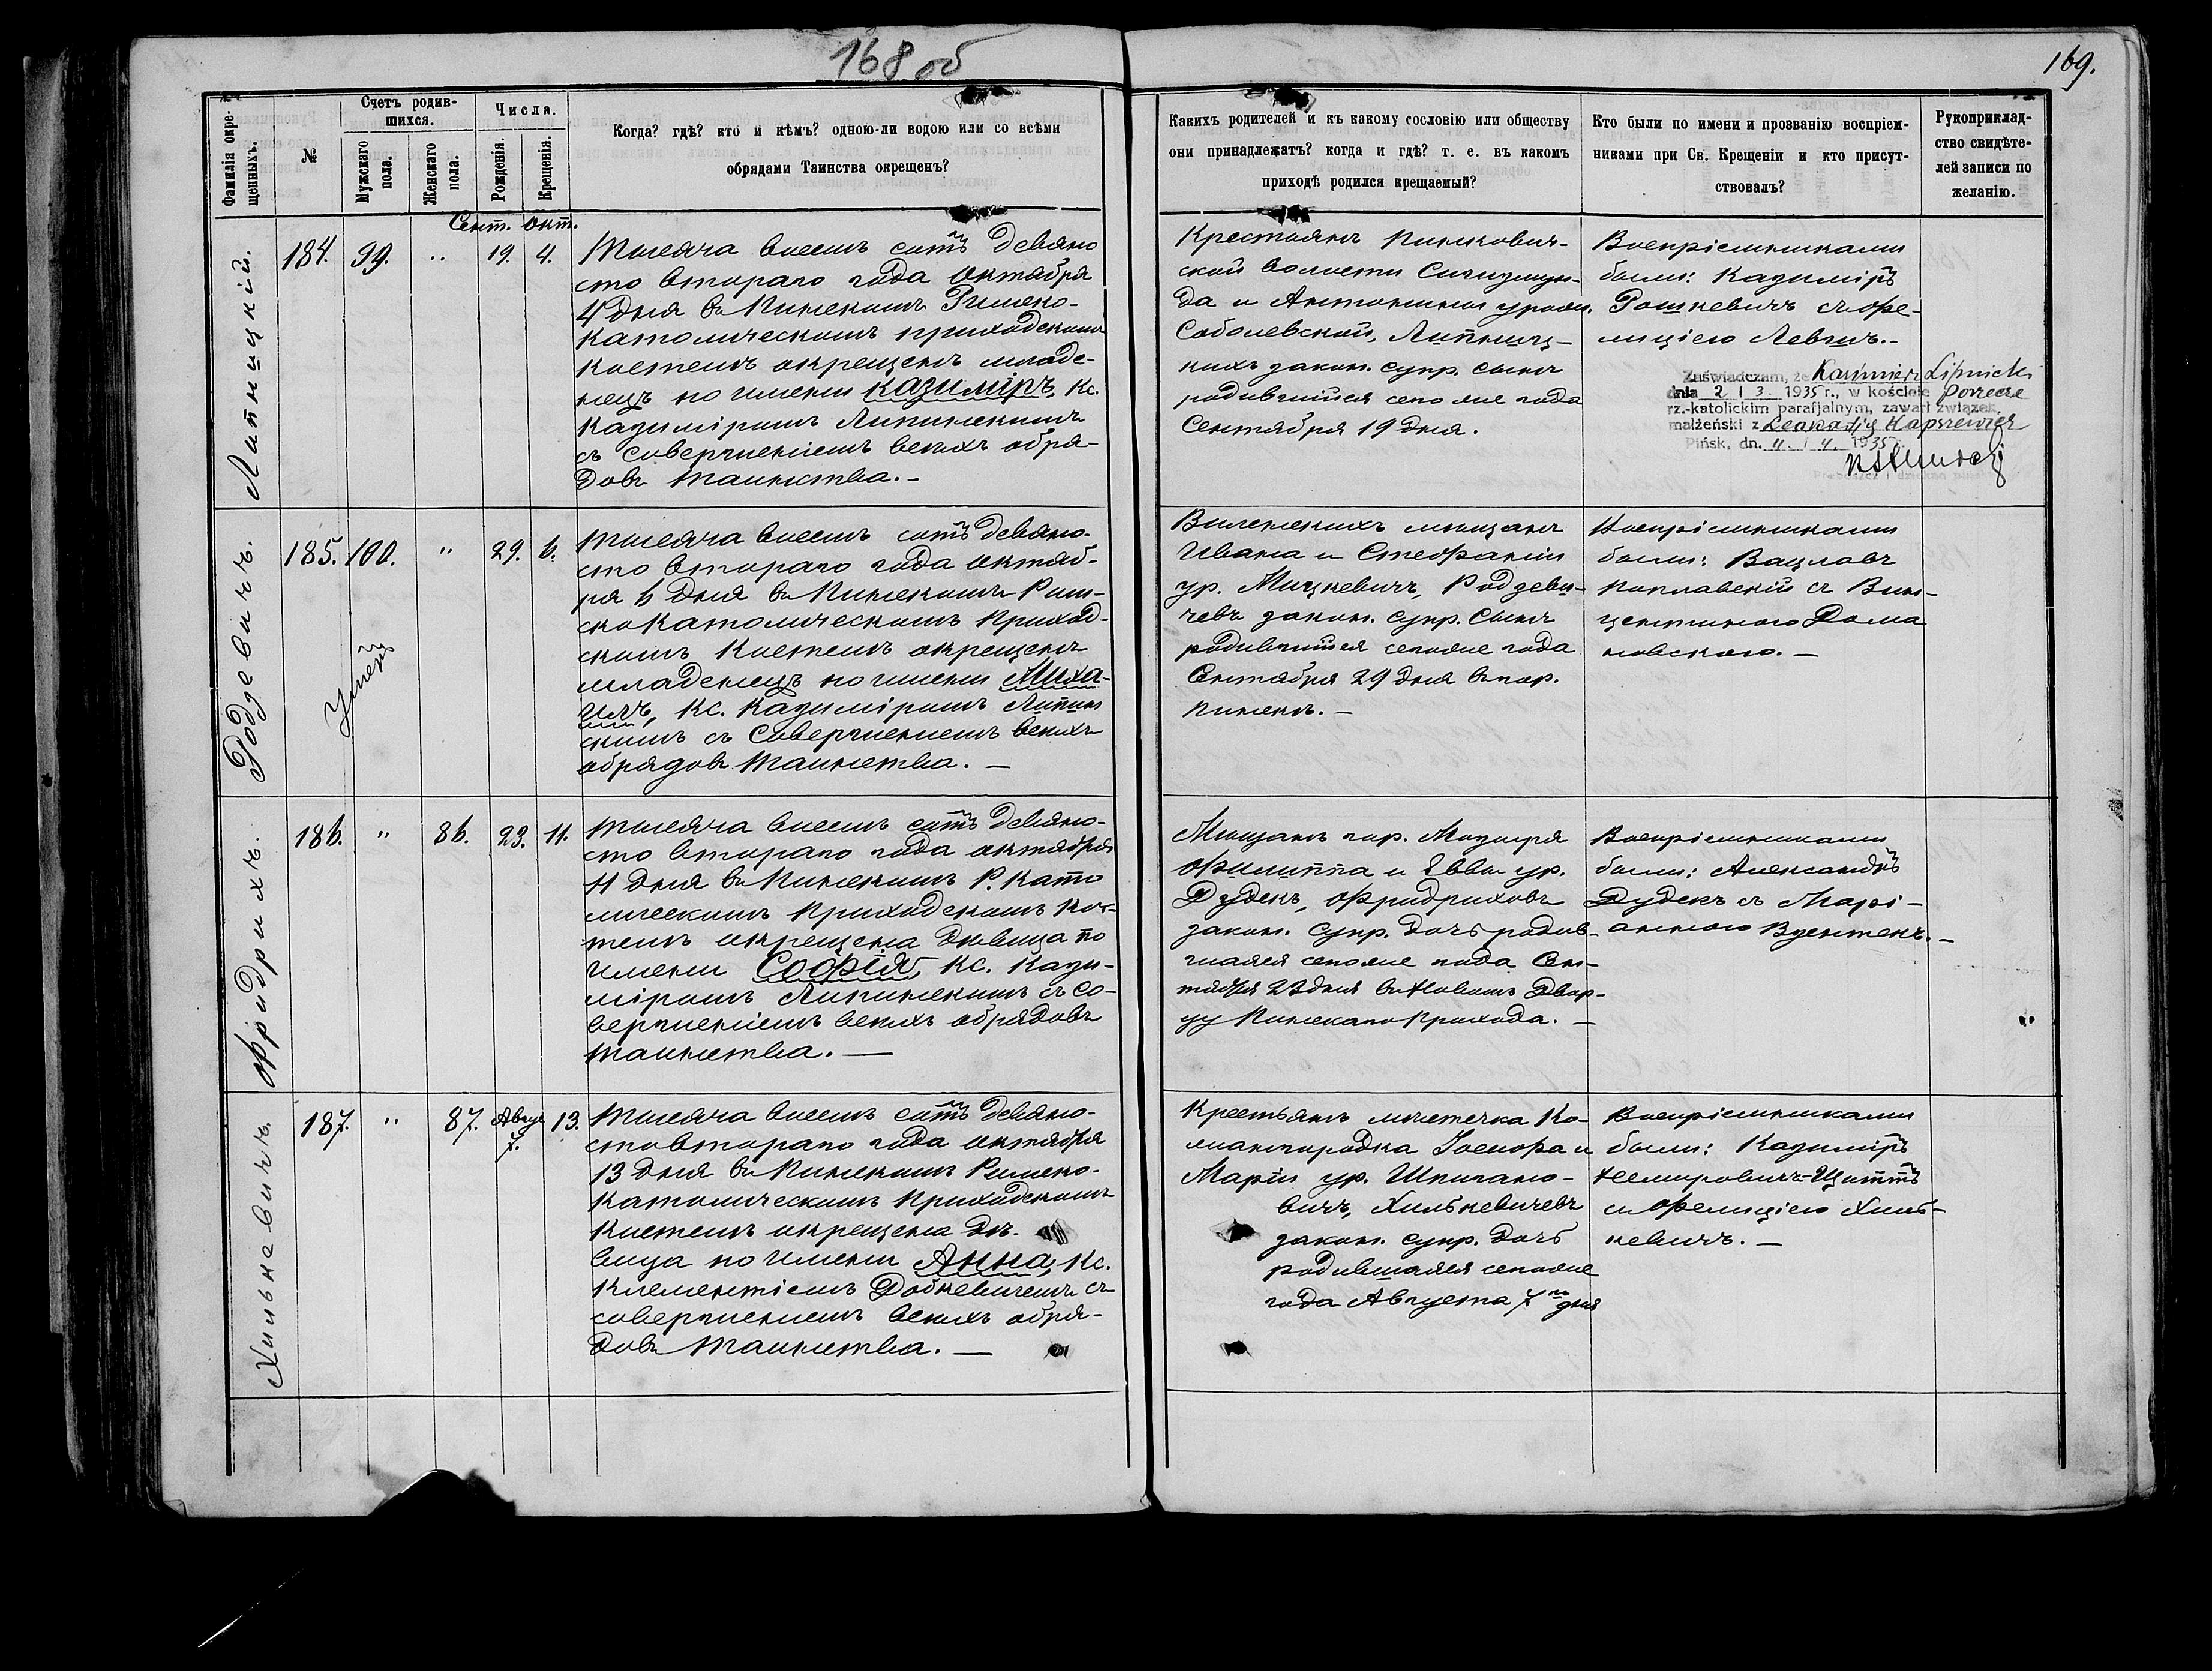 168 об
169.
Фамилія окре-
щенныхъ.
№
Счетъ родив-
шихся.
Мужскаго
пола.
Женскаго
пола.
Числа.
Рожденія.
Крещенія.
Когда? гдѣ? кто и кѣмъ? одною-ли водою или со всѣми
обрядами Таинства окрещенъ?
Какихъ родителей и къ какому сословію или обществу
они принадлежатъ? когда и гдѣ? т. е. въ какомъ
приходѣ родился крещаемый?
Кто были по имени и прозванію воспріем-
никами при Св. Крещеніи и кто присут-
ствовалъ?
Рукоприклад-
ство свидѣте-
лей записи по
желанію.
Сент. Окт.
Липницкій.
184. 99. " 19. 4.
Тысяча восемь сотъ девяно
сто втораго года Октября
4 дня въ Пинскомъ Римско-
Католическомъ приходскомъ
Костелѣ окрещенъ младе-
нецъ по имени Казиміръ, Кс.
Казиміромъ Липинскимъ
съ совершеніемъ всѣхъ обря-
довъ таинства. –
Крестьянъ Пинкович-
ской волости Сигизмун-
да и Антонины урожд.
Соболевской, Липниц-
кихъ закон. супр. сынъ
родившийся сего же года
Сентября 19 дня.
Воспріемниками
были: Казиміръ
Рошкевичъ съ Фе-
лиціею Левгинъ. –
Zaświadczam, że Kazimierz Lipnicki
dnia 2 I 3. 1935 r., w kościele Porzecze
rz.-katolickim parafjalnym, zawarł związek
małżeński z Leokadją
Pińsk, dn. 4. I 4. 1935
Родзевичъ.
185. 100. " 29. 6.
Умеръ
Тысяча восемь сотъ девяно-
сто втораго года октяб-
ря 6 дня въ Пинскомъ Рим-
ско Католическомъ Приход-
скомъ Костелѣ окрещенъ
младенецъ по имени Миха-
илъ, Кс. Казиміромъ Липин
скимъ съ Совершениемъ всѣхъ
обрядовъ таинства. –
Виленскихъ мѣщанъ
Ивана и Стефаніи
ур. Мицкевичъ, Родзеви-
чевъ закон. супр. сынъ
родившийся сего же года
Сентября 29 дня въ гор.
Пинскѣ. –
Воспріемниками
были: Вацлавъ
Поплавскій съ Вин-
центиною Дома
новскою. –
Фридрихъ.
186. " 86. 23. 11.
Тысяча восемь сотъ девяно-
сто втораго года октября
11 дня въ Пинскомъ Р. Като
лическомъ Приходскомъ Кос-
телѣ окрещена Дѣвица по
имени Софія, Кс. Кази-
міромъ Липинскимъ съ со-
вершеніемъ всѣхъ обрядовъ
таинства. –
Мѣщанъ гор. Мозыря
Филиппа и Еввы ур.
Дудекъ, Фридриховъ
закон. супр. дочь родив-
шаяся сего же года Сен-
тября 23 дня въ Новомъ Двор-
цу Пинскаго Прихода. –
Воспріемниками
были: Александръ
Дудекъ съ Марі-
анною –
Хильневичъ.
187. " 87. Авгус 7. 13.
Тысяча восемь сотъ девяно-
сто втораго года октября
13 дня въ Пинскомъ Римско-
Католическомъ Приходскомъ
Костелѣ окрещена дѣ-
вица по имени Анна, Кс.
Клементіемъ Добкевичемъ съ
совершениемъ всѣхъ обря-
довъ Таинства. –
Крестьянъ мѣстечка Ко-
жангородка Іосифа и
Маріи ур. Шпигано-
вичъ, Хильневичевъ
закон. супр. дочь
родившаяся сего же
года Августа 7го дня
Воспріемниками
были: Казиміръ
Немировичъ-Щиттъ
съ Фелиціею Хиль-
невичъ. –